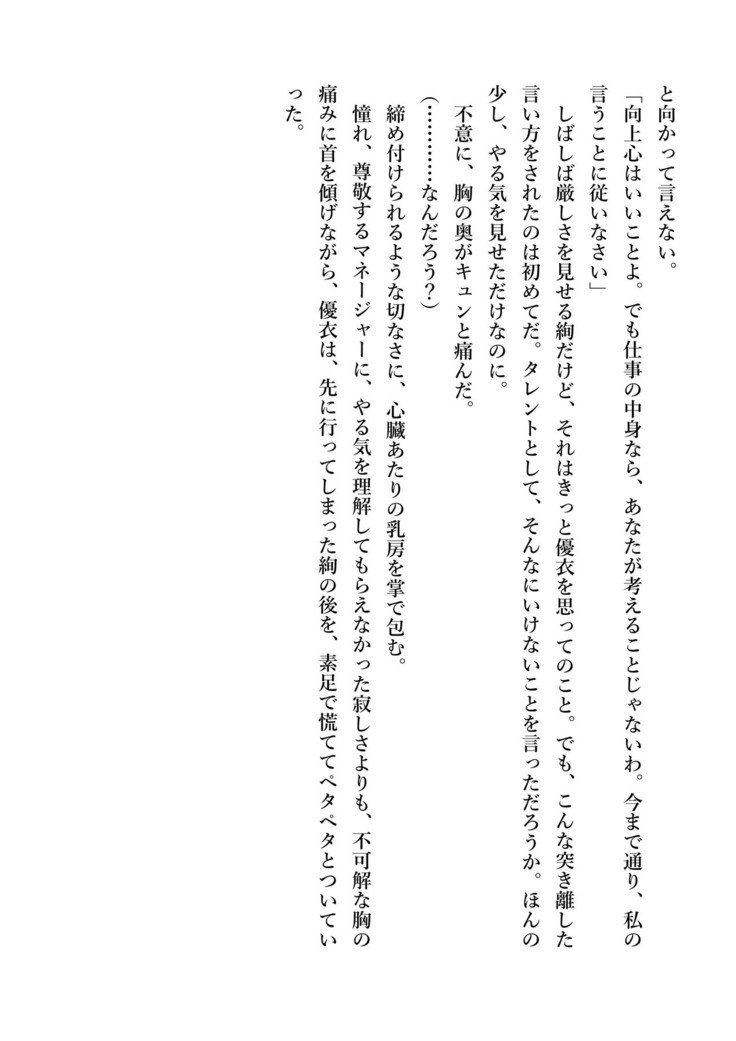 と向かって言えない。
「向上心はいいことよ。でも仕事の中身なら、あなたが考えることじゃないわ。今まで通り、私の
言うことに従いなさい」
しばしば厳しさを見せる絢だけど、それはきっと優衣を思ってのこと。でも、こんな突き離した
言い方をされたのは初めてだ。タレントとして、そんなにいけないことを言っただろうか。ほんの
少し、やる気を見せただけなのに。
不意に、胸の奥がキュンと痛んだ。
(…………なんだろう?)
締め付けられるような切なさに、心臓あたりの乳房を掌で包む。
憧れ、尊敬するマネージャーに、やる気を理解してもらえなかった寂しさよりも、不可解な胸の
痛みに首を傾げながら、優衣は、先に行ってしまった絢の後を、素足で慌ててペタペタとついてい
った。